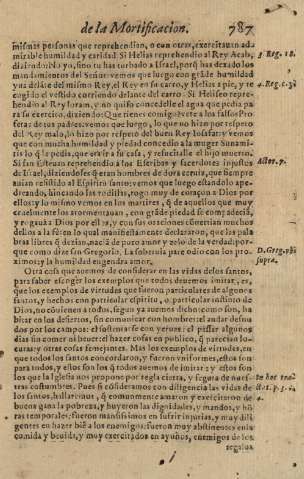 de la Mortificacion. 787
mismas personas que reprehendian, o con otras, exercitauan ad-
mirable humildad y caridad. Si Helias reprehendio al Rey Acab,
diziendo: No yo, sino tu has turbado a Israel, porq̃ has dexado los
mandamientos del Señor: vemos que luego con grãde humildad
yua delãte del mismo Rey, el Rey en su carro, y Helias a pie, y re
cogido el vestido corriendo delante del carro. Si Heliseo repre-
hendio al Rey Ioram, y no quiso concedelle el agua que pedia pa
ra su exercito, diziendo: Que tienes comigo? vete a los falsos Pro
fetas de tus padres: vemos que luego, lo que no hizo por respeto
del Rey malo, lo hizo por respeto del buen Rey Iosafat: y vemos
que con mucha humildad y piedad concedio a la muger Sunami-
tis lo q̃ le pedia, que era yr a su casa, y resucitalle el hijo muerto.
Si san Esteuan reprehendio a los Escribas y sacerdotes injustos
de Israel, diziendoles q̃ eran hombres de dura ceruiz, que siempre
auian resistido al Espiritu santo: vemos que luego estandolo ape-
dreando, hincadas las rodillas, rogo muy de coraçon a Dios por
ellos: y lo mismo vemos en los martires, q̃ de aquellos que muy
cruelmente los atormentauan, con grãde piedad se compadeciã,
y rogauã a Dios por ellos, y con sus oraciones conuertian muchos
dellos a la fe: en lo qual manifiestamente declararon, que las pala
bras libres q̃ dezian, naciã de puro amor y zelo de la verdad: por-
que como dize san Gregorio. La soberuia pare odio con los pro-
ximos: y la humildad engendra amor.
Otra cosa que auemos de considerar en las vidas de los santos,
para saber escoger los exemplos que todos deuemos imitar, es,
que los exemplos de virtudes que fueron particulares de algunos
santos, y hechos con particular espiritu, o particular instinto de
Dios, no cõuienen a todos, segun ya auemos dicho: como son, ha
bitar en los desiertos, sin comunicar con hombre: el andar desnu
dos por los campos: el sustentarse con yeruas: el passar algunos
dias sin comer ni beuer: el hazer cosas en publico, q̃ parecian lo-
curas: y otras cosas semejantes. Mas los exemplos de virtudes, en
que todos los santos concordaron, y fueron vniformes, estos son
para todos, y estos son los q̃ todos auemos de imitar: y estos son
los que la Iglesia nos propone por regla cierta, y segura de nues-
tras costumbres. Pues si consideramos con diligencia las vidas de
los santos, hallaremos, q̃ comunmente amaron y exercitaron de
buena gana la pobreza, y huyeron las dignidades, y mandos, y hõ
ras temporales, fueron mansissimos en sufrir injurias, y muy dili
gentes en hazer biẽ a los enemigos: fueron muy abstinentes en la
comida y beuida, y muy exercitados en ayunos, enemigos de los
regalos
3. Reg. 18.
4. Reg.
Actos. 7.
D. Greg. vbi
supra.